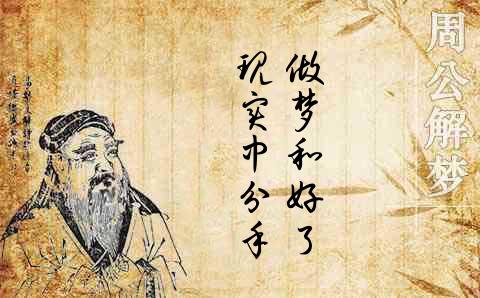 周公解梦
做梦和好了
现实中分手